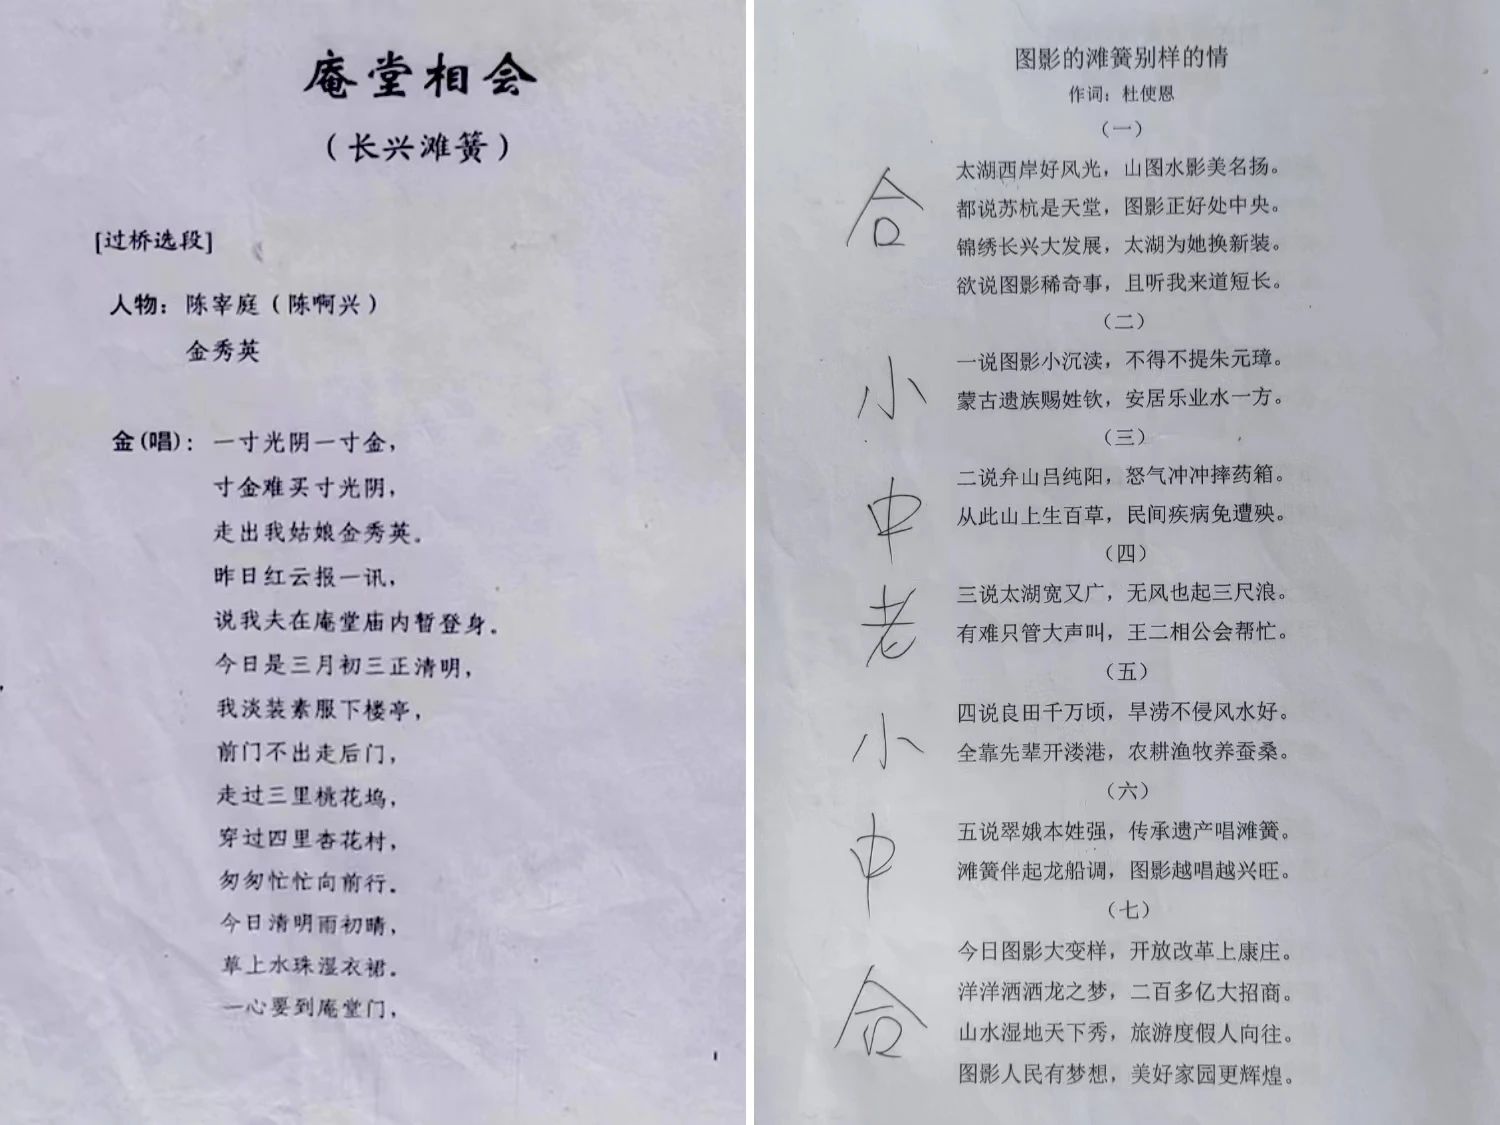 庵堂相会
（长兴滩簧）
[过桥选段]
人物：陈宰庭（陈啊兴）
金秀英
金(唱)：一寸光阴一寸金，
寸金难买寸光阴，
走出我姑娘金秀英。
昨日红云报一讯，
说我夫在庵堂庙内暂登身。
今日是三月初三正清明，
我淡装素服下楼亭，
前门不出走后门，
走过三里桃花坞，
穿过四里杏花村，
匆匆忙忙向前行。
今日清明雨初晴，
草上水珠湿衣裙。
一心要到庵堂门，
1
图影的滩簧别样的情
作词：杜使恩
（一）
合
太湖西岸好风光，山图水影美名扬。
都说苏杭是天堂，图影正好处中央。
锦绣长兴大发展，太湖为她换新装。
欲说图影稀奇事，且听我来道短长。
（二）
小
一说图影小沉渎，不得不提朱元璋。
蒙古遗族赐姓钦，安居乐业水一方。
（三）
中
二说弁山吕纯阳，怒气冲冲摔药箱。
从此山上生百草，民间疾病免遭殃。
（四）
老
三说太湖宽又广，无风也起三尺浪。
有难只管大声叫，王二相公会帮忙。
（五）
小
四说良田千万顷，旱涝不侵风水好。
全靠先辈开溇港，农耕渔牧养蚕桑。
（六）
中
五说翠娥本姓强，传承遗产唱滩簧。
滩簧伴起龙船调，图影越唱越兴旺。
（七）
合
今日图影大变样，开放改革上康庄。
洋洋洒洒龙之梦，二百多亿大招商。
山水湿地天下秀，旅游度假人向往。
图影人民有梦想，美好家园更辉煌。